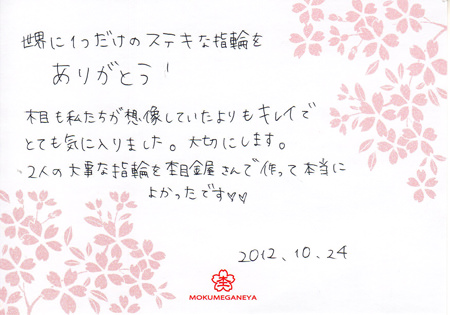 世界に1つだけのステキな指輪を
ありがとう!
木目も私たちが想像していたよりもキレイで
とても気に入りました。大切にします。
2人の大事な指輪を杢目金屋さんで作って本当に
よかったです♥♥
2012.10.24
杢
MOKUMEGANEYA